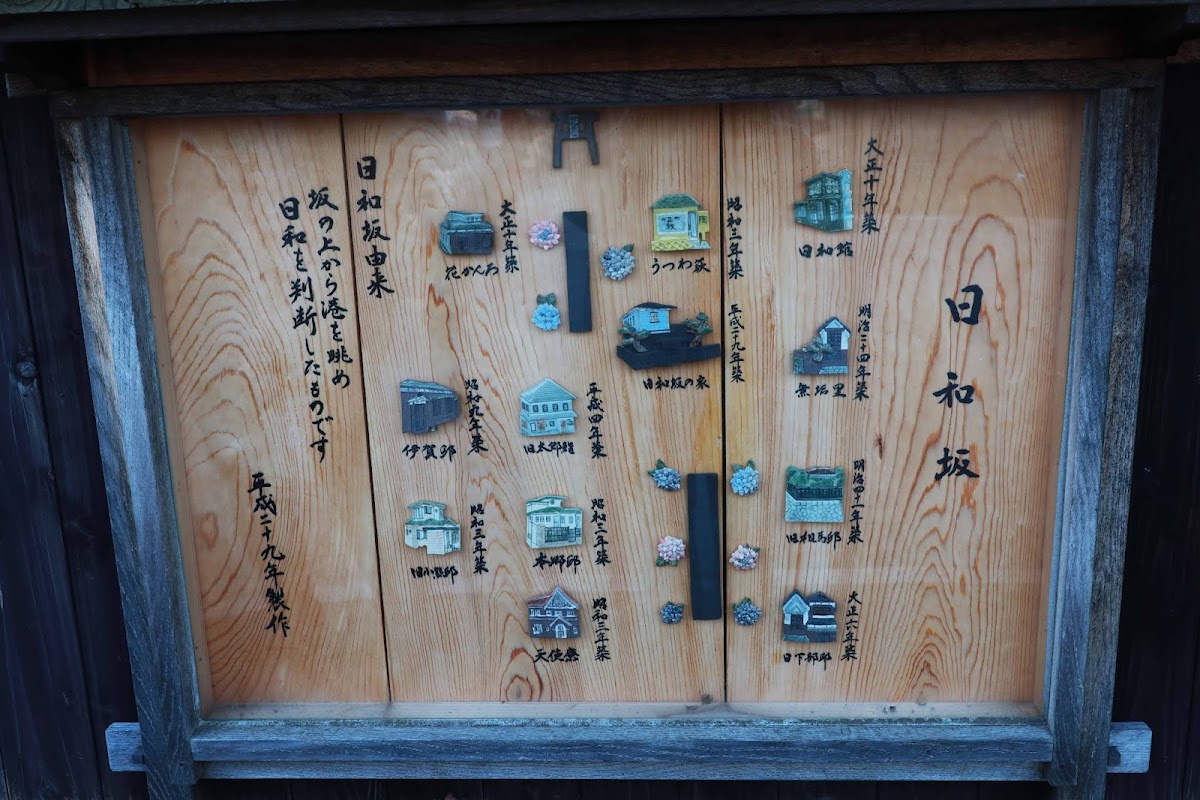 日和坂
大正十年築
日和館
明治三十四年築
無垢里
明治四十一年築
旧相馬邸
大正六年築
日下部邸
昭和三年築
うつわ荻
平成二十九年築
日和坂の家
大正十年築
花かんろ
平成四年築
昭和九年築
伊賀邸
昭和三年築
本郷邸
昭和三年築
昭和三年築
日和坂由来
坂の上から港を眺め
日和を判断したものです
平成二十九年製作